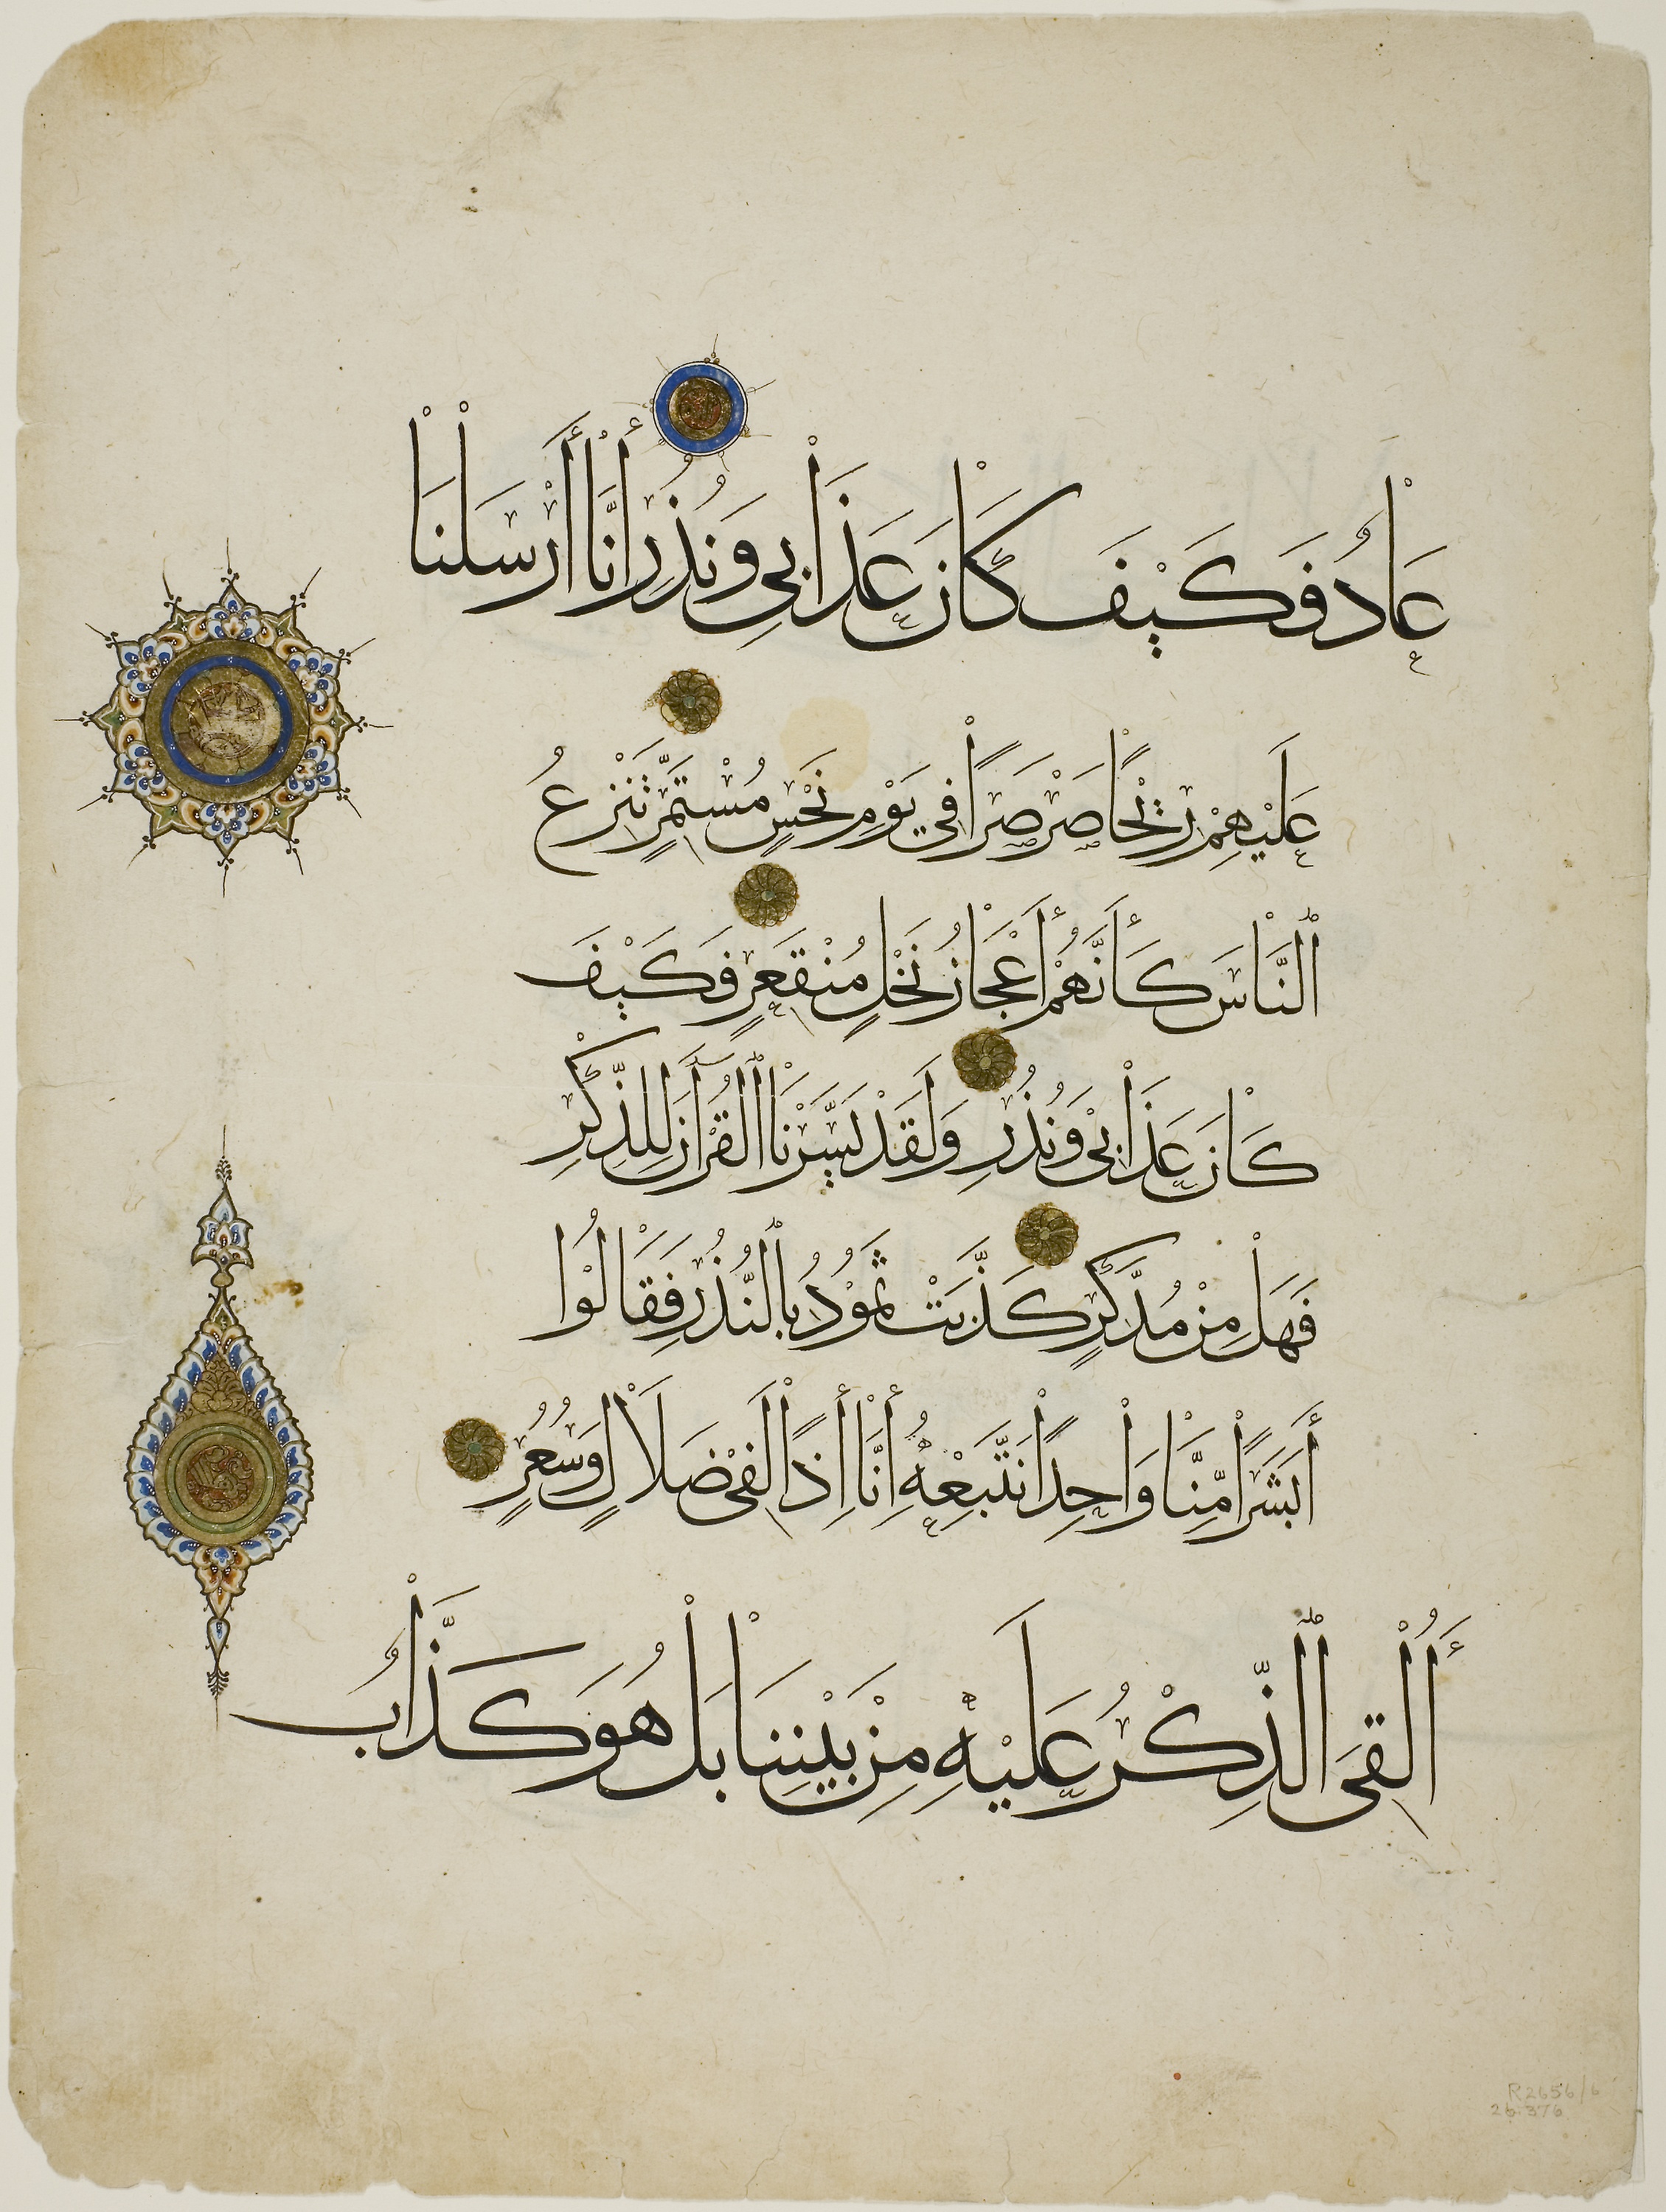 عَادٌ فَكَيْفَ كَانَ عَذَابِي وَنُذُرِ إِنَّا أَرْسَلْنَا
عَلَيْهِمْ رِيْحًا صَرْصَرًا فِي يَوْمِ نَحْسٍ مُسْتَمِرٍّ تَنْزِعُ
اَلنَّاسَ كَأَنَّهُمْ أَعْجَازُ نَخْلٍ مُنْقَعِرٍ فَكَيْفَ
كَانَ عَذَابِيْ وَنُذُرِ وَلَقَدْ يَسَّرْنَا الْقُرْآنَ لِلذِّكْرِ
فَهَلْ مِنْ مُدَّكِرٍ كَذَّبَتْ ثَمُوْدُ بِالنُّذُرِ فَقَالُوْا
أَبَشَرًا مِّنَّا وَاحِدًا نَتَّبِعُهُ إِنَّا إِذًا لَفِيْ ضَلَالٍ وَسُعُرٍ
أَلْقِىَ الذِّكْرُ عَلَيْهِ مِنْ بَيْنِنَا بَلْ هُوَ كَذَّابٌ
R2656/6
26.376